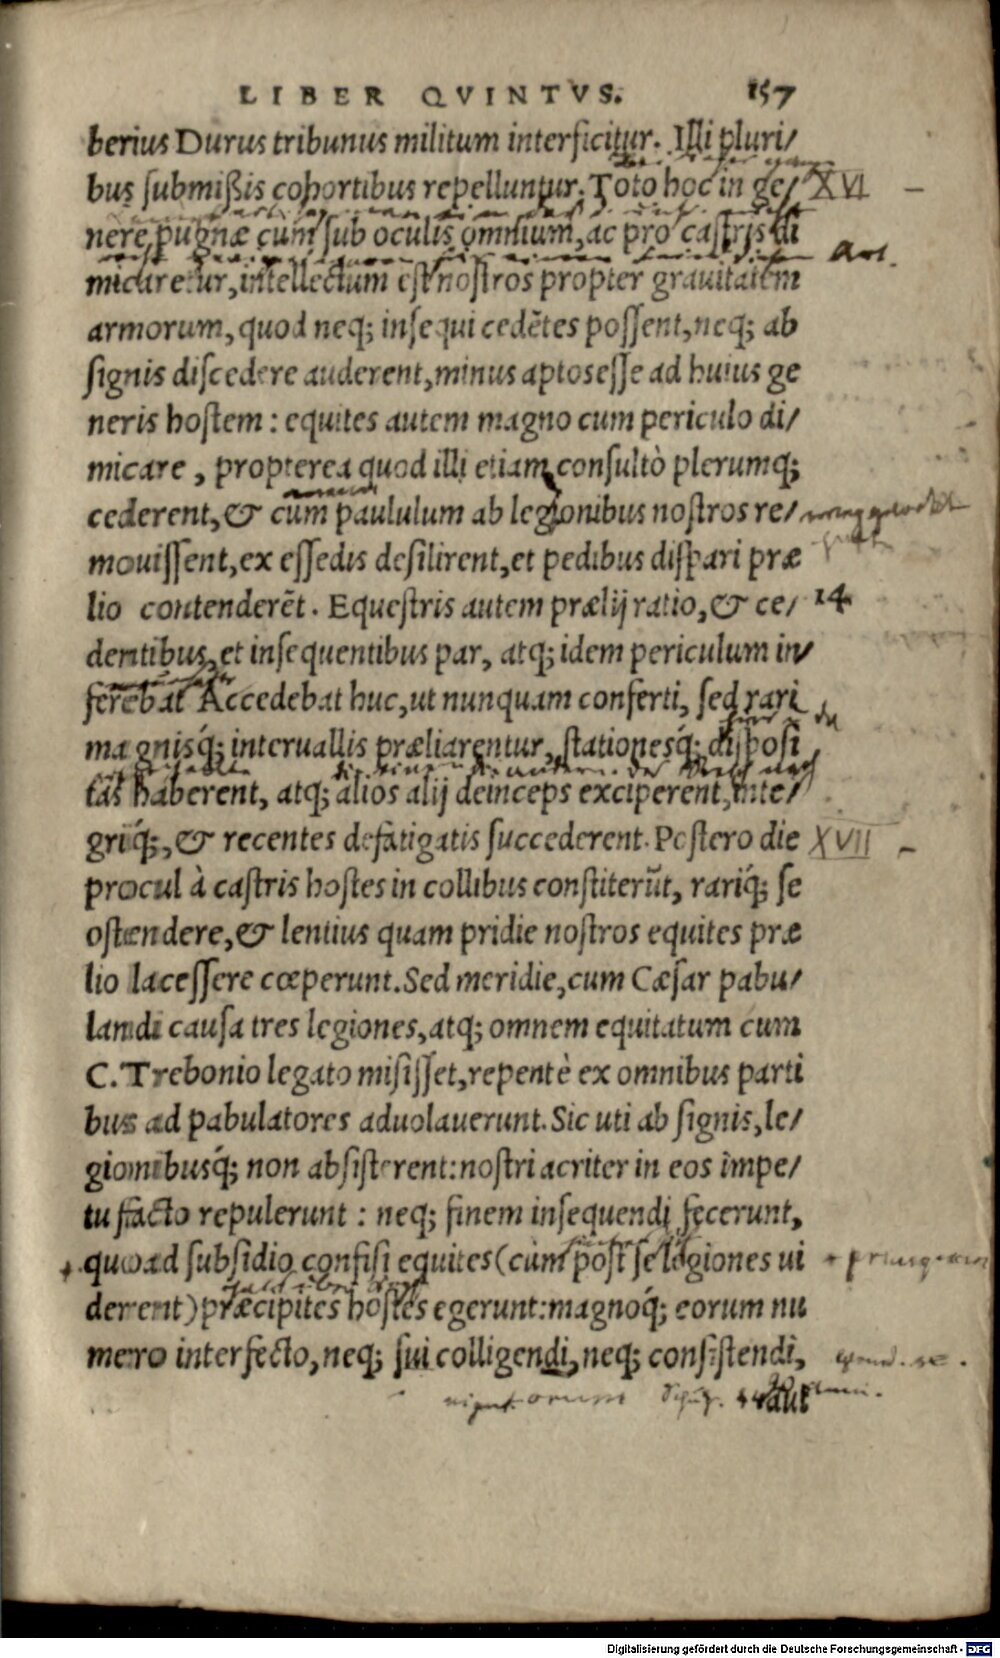 LIBER QVINTVS. 157
berius Durus tribunus militum interficitur. Illi pluri/
bus submißis cohortibus repelluntur. Toto hoc in ge/ XVI
nere pugnæ cum sub oculis omnium, ac pro castris di
micaretur, intellectum est nostros propter grauitatem
armorum, quod neq; insequi cedẽtes possent, neq; ab
signis discedere auderent, minus aptos esse ad huius ge
neris hostem: equites autem magno cum periculo di/
micare, propterea quod illi etiam consultò plerumq;
cederent, & cum paululum ab legionibus nostros re/
mouissent, ex essedis desilirent, et pedibus dispari præ
lio contenderẽt. Equestris autem prælij ratio, & ce/ 14
dentibus, et insequentibus par, atq; idem periculum in/
ferebat Accedebat huc, ut nunquam conferti, sed rari
magnisq́; interuallis præliarentur, stationesq́; disposi
tas haberent, atq; alios alij deinceps exciperent, inte/
griq́;, & recentes defatigatis succederent. Postero die XVII
procul à castris hostes in collibus constiterũt, rariq́; se
ostendere, & lentius quam pridie nostros equites præ
lio lacessere cœperunt. Sed meridie, cum Cæsar pabu/
landi causa tres legiones, atq; omnem equitatum cum
C. Trebonio legato misisset, repentè ex omnibus parti
bus ad pabulatores aduolauerunt. Sic uti ab signis, le/
gionibusq́; non absisterent: nostri acriter in eos impe/
tu facto repulerunt: neq; finem insequendi fecerunt,
quoad subsidio confisi equites (cùm post se legiones ui
derent) præcipites hostes egerunt: magnoq́; eorum nu
mero interfecto, neq; sui colligendi, neq; consistendi,
aut
Digitalisierung gefördert durch die Deutsche Forschungsgemeinschaft - DFG